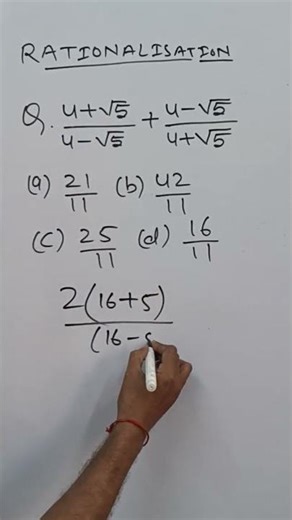 RATIONALISATION
Q. 4+√5/4-√5 + 4-√5/4+√5
(a) 21/11 (b) 42/11
(c) 25/11 (d) 16/11
2(16+5)
(16-5